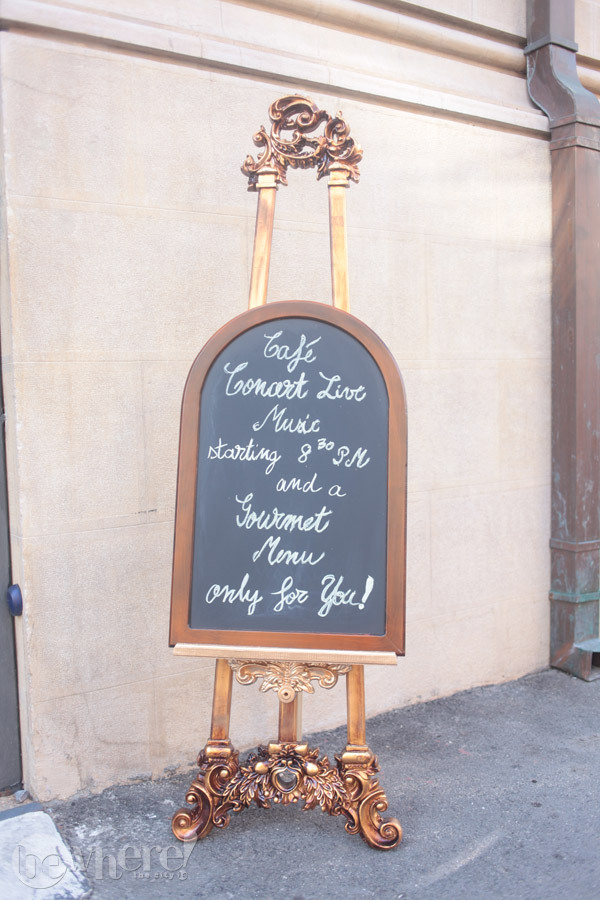 Café
Conart Live
Music
starting 8 30 PM
and a
Gourmet
Menu
only for You!
be where!
the city is